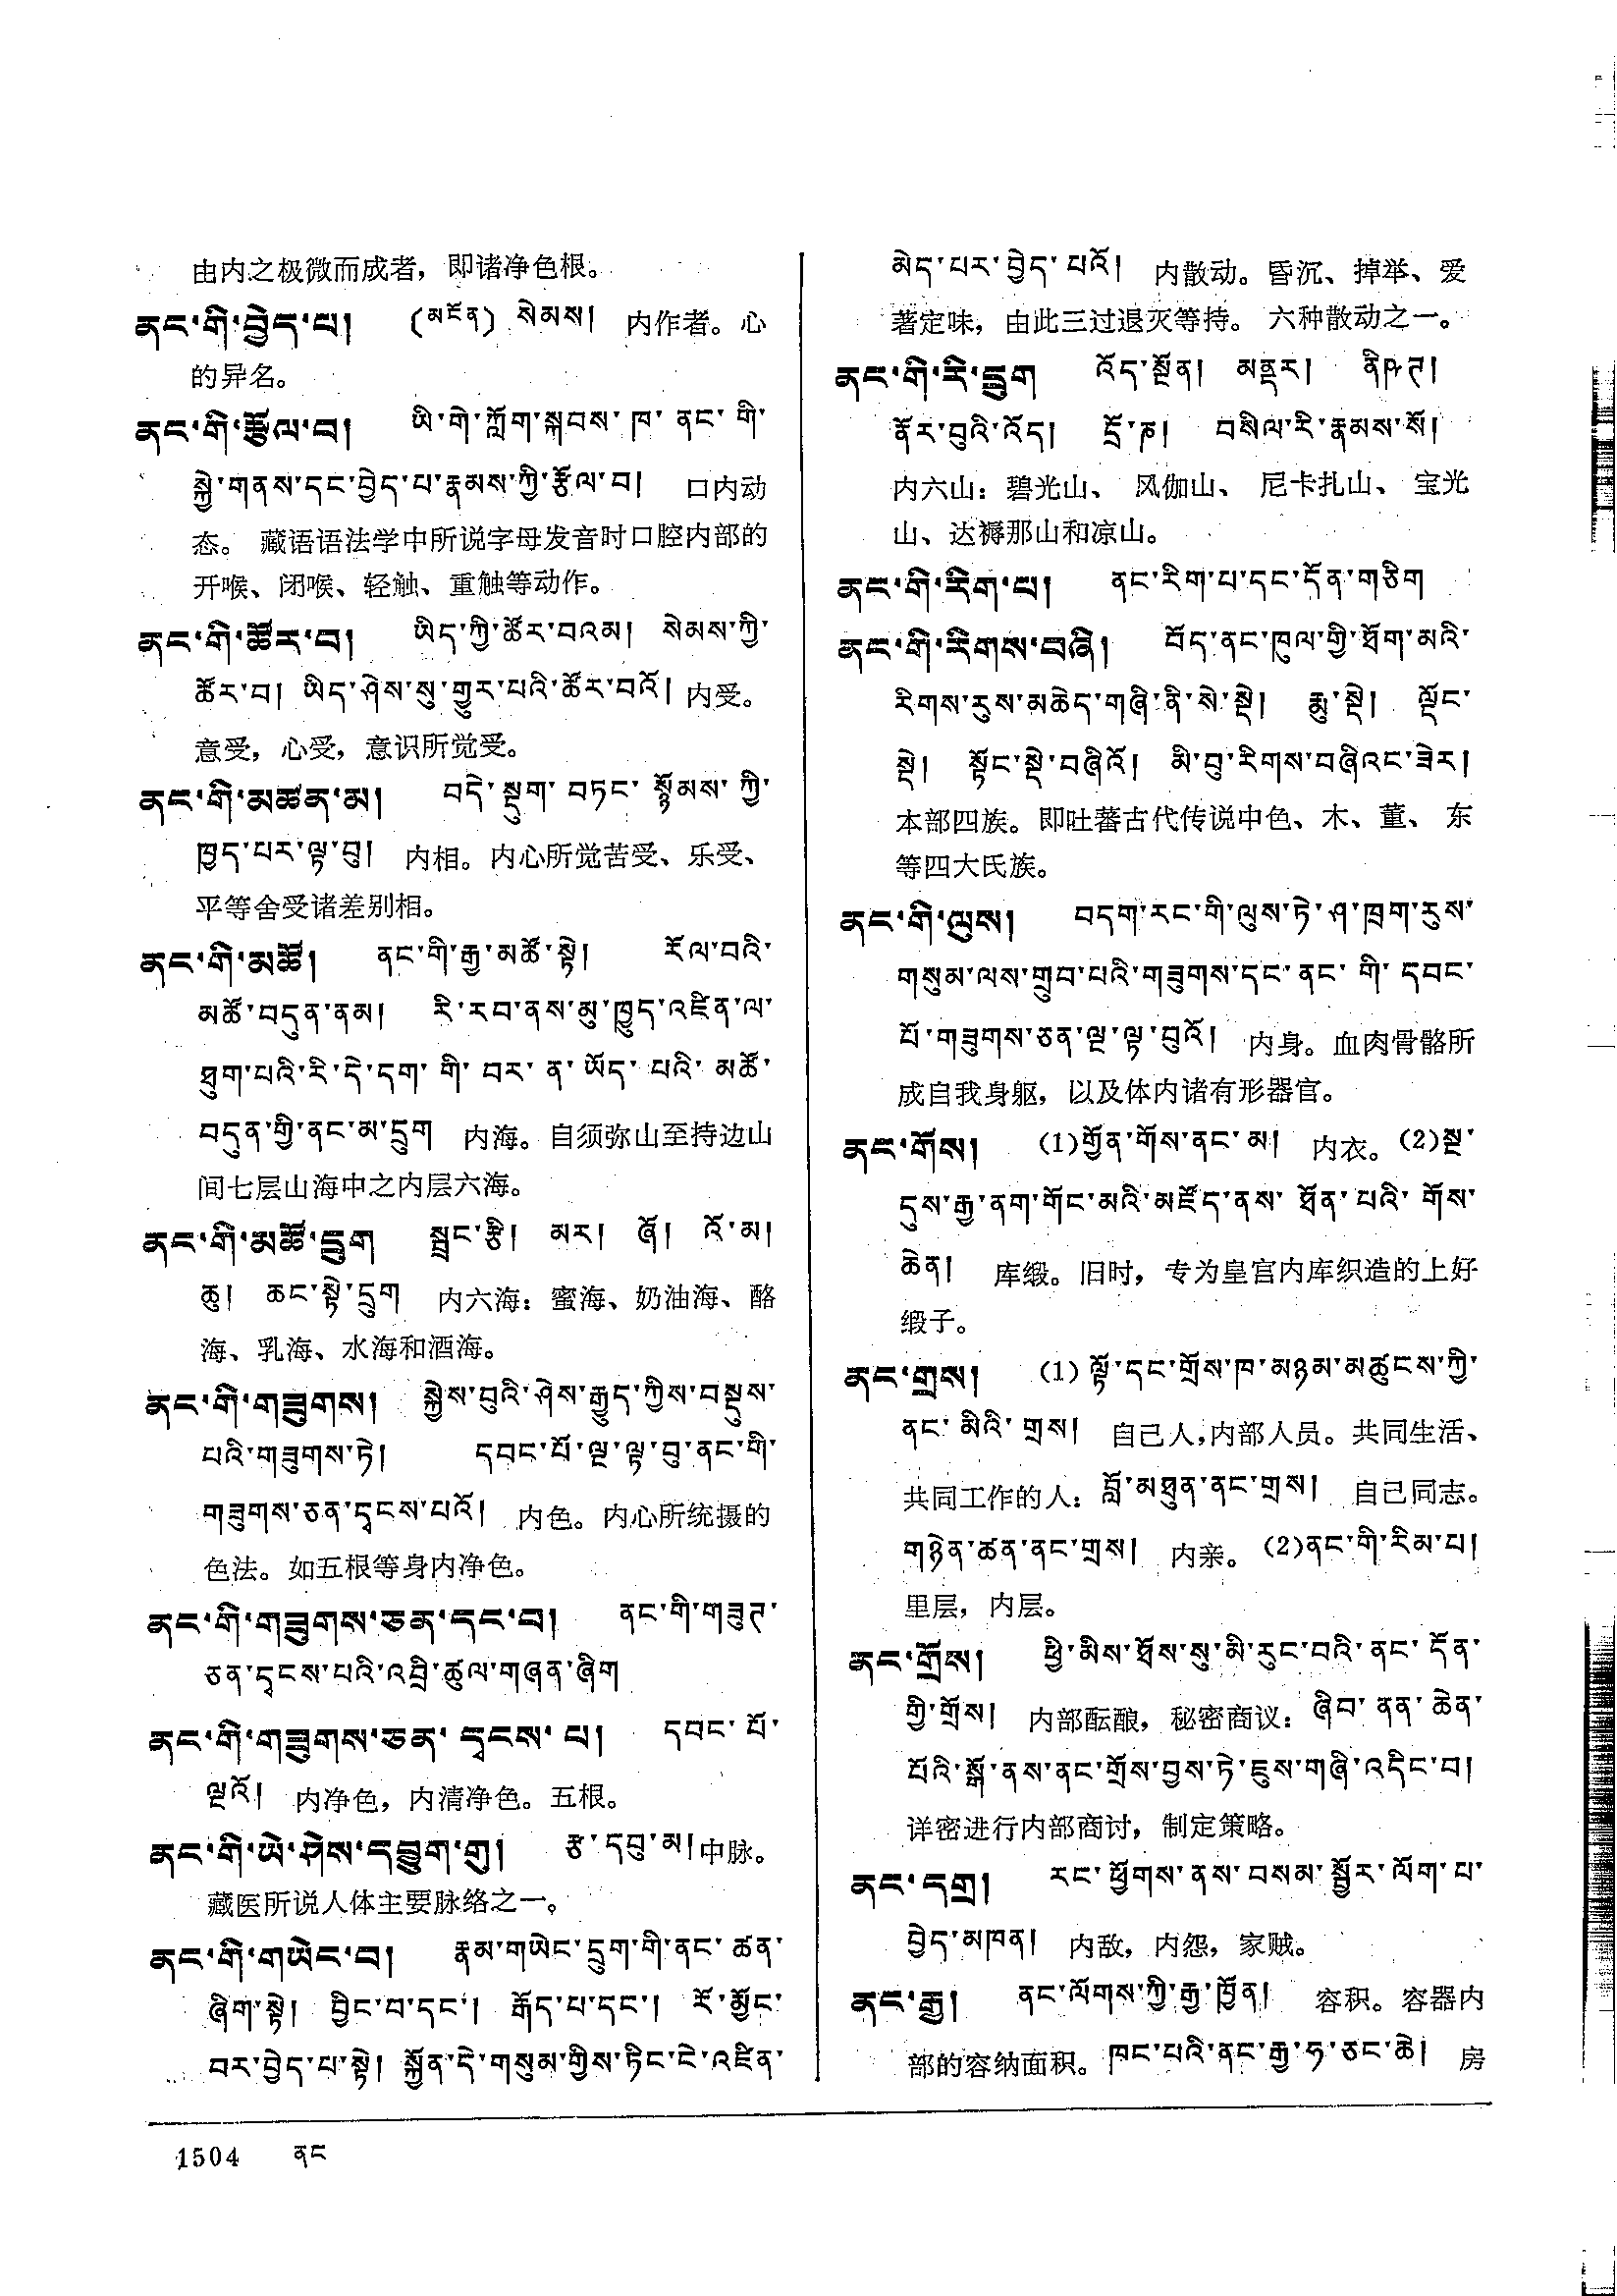 由内之极微而成者，即诸净色根。
ནང་གི་བྱེད་པ། (མངོན) སེམས། 内作者。心
的异名。
ནང་གི་རྩོལ་བ། ཡི་གེ་ཀློག་སྐབས་ཁ་ནང་གི་
སྐྱེ་གནས་དང་བྱེད་པ་རྣམས་ཀྱི་རྩོལ་བ། 口内动
态。藏语语法学中所说字母发音时口腔内部的
开喉、闭喉、轻触、重触等动作。
ནང་གི་ཚོར་བ། ཡིད་ཀྱི་ཚོར་བའམ། སེམས་ཀྱི་
ཚོར་བ། ཡིད་ཤེས་སུ་གྱུར་པའི་ཚོར་བའོ། 内受。
意受，心受，意识所觉受。
ནང་གི་མཚན་མ། བདེ་སྡུག་བཏང་སྙོམས་ཀྱི་
ཁྱད་པར་ལྟ་བུ། 内相。内心所觉苦受、乐受、
平等舍受诸差别相。
ནང་གི་མཚོ། ནང་གི་རྒྱ་མཚོ་སྟེ། རོལ་བའི་
མཚོ་བདུན་ནམ། རི་རབ་ནས་མུ་ཁྱུད་འཛིན་ལ་
ཐུག་པའི་རི་དེ་དག་གི་བར་ན་ཡོད་པའི་མཚོ་
བདུན་གྱི་ནང་མ་དྲུག 内海。自须弥山至持边山
间七层山海中之内层六海。
ནང་གི་མཚོ་དྲུག སྦྲང་རྩི། མར། ཞོ། འོ་མ།
ཆུ། ཆང་སྟེ་དྲུག 内六海：蜜海、奶油海、酪
海、乳海、水海和酒海。
ནང་གི་གཟུགས། སྐྱེས་བུའི་ཤེས་རྒྱུད་ཀྱིས་བསྡུས་
པའི་གཟུགས་ཏེ། དབང་པོ་ལྔ་ལྟ་བུ་ནང་གི་
གཟུགས་ཅན་དྭངས་པའོ། 内色。内心所统摄的
色法。如五根等身内净色。
ནང་གི་གཟུགས་ཅན་དང་བ། ནང་གི་གཟུཊ་
ཅན་དྭངས་པའི་འབྲི་ཚུལ་གཞན་ཞིག
ནང་གི་གཟུགས་ཅན་དྭངས་པ། དབང་པོ་
ལྔའོ། 内净色，内清净色。五根。
ནང་གི་ཡེ་ཤེས་དབྱུག་གུ། རྩ་དབུ་མ། 中脉。
藏医所说人体主要脉络之一。
ནང་གི་གཡེང་བ། རྣམ་གཡེང་དྲུག་གི་ནང་ཚན་
ཞིག་སྟེ། བྱིང་བ་དང་། རྒོད་པ་དང་། རོ་མྱོང་
བར་བྱེད་པ་སྟེ། སྐྱོན་དེ་གསུམ་གྱིས་ཏིང་ངེ་འཛིན་
མེད་པར་བྱེད་པའོ། 内散动。昏沉、掉举、爱
著定味，由此三过退灭等持。六种散动之一。
ནང་གི་རི་དྲུག འོད་སྔོན། མནྡར། ནིཥཊ།
ནོར་བུའི་འོད། དྲོ་ཎ། བསིལ་རི་རྣམས་སོ།
内六山：碧光山、风伽山、尼卡扎山、宝光
山、达褥那山和凉山。
ནང་གི་རིག་པ། ནང་རིག་པ་དང་དོན་གཅིག
ནང་གི་རིགས་བཞི། བོད་ནང་ཁུལ་གྱི་ཐོག་མའི་
རིགས་རུས་མཆེད་གཞི་ནི་སེ་སྡེ། རྨུ་སྡེ། ལྡོང་
སྡེ། སྟོང་སྡེ་བཞིའོ། མི་བུ་རིགས་བཞིའང་ཟེར།
本部四族。即吐蕃古代传说中色、木、董、东
等四大氏族。
ནང་གི་ལུས། བདག་རང་གི་ལུས་ཏེ་ཤ་ཁྲག་རུས་
གསུམ་ལས་གྲུབ་པའི་གཟུགས་དང་ནང་གི་དབང་
པོ་གཟུགས་ཅན་ལྔ་ལྟ་བུའོ། 内身。血肉骨骼所
成自我身躯，以及体内诸有形器官。
ནང་གོས། (1)གྱོན་གོས་ནང་མ། 内衣。(2)སྔ་
དུས་རྒྱ་ནག་གོང་མའི་མཛོད་ནས་ཐོན་པའི་གོས་
ཆེན། 库缎。旧时，专为皇宫内库织造的上好
缎子。
ནང་གྲས། (1) ལྟོ་དང་གྲོས་ཁ་མཉམ་མཚུངས་ཀྱི་
ནང་མིའི་གྲས། 自己人,内部人员。共同生活、
共同工作的人：བློ་མཐུན་ནང་གྲས། 自己同志。
གཉེན་ཚན་ནང་གྲས། 内亲。(2)ནང་གི་རིམ་པ།
里层，内层。
ནང་གྲོས། ཕྱི་མིས་ཐོས་སུ་མི་རུང་བའི་ནང་དོན་
གྱི་གྲོས། 内部酝酿，秘密商议：ཞིབ་ནན་ཆེན་
པོའི་སྒོ་ནས་ནང་གྲོས་བྱས་ཏེ་ཇུས་གཞི་འདིང་བ།
详密进行内部商讨，制定策略。
ནང་དགྲ། རང་ཕྱོགས་ནས་བསམ་སྦྱོར་ལོག་པ་
བྱེད་མཁན། 内敌，内怨，家贼。
ནང་རྒྱ། ནང་ལོགས་ཀྱི་རྒྱ་ཁྱོན། 容积。容器内
部的容纳面积。ཁང་པའི་ནང་རྒྱ་ཧ་ཅང་ཆེ། 房
1504 ནང